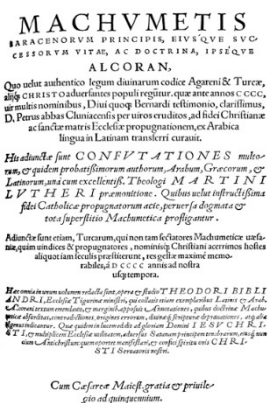 MACHVMETIS
SARACENORVM PRINCIPIS, EIVSQVE SVC
CESSORVM VITAE, AC DOCTRINA, IPSEQVE
ALCORAN,
Quo uelut authentico legum diuinarum codice Agareni & Turcæ,
alijq; CHRISTO aduersantes populi regutur. quæ ante annos CCCC,
uir multis nominibus, Diui quoq; Bernardi testimonio, clarissimus,
D. Petrus abbas Cluniacensis per uiros eruditos, ad fidei Christianæ
ac sanctæ matris Ecclesiæ propugnationem, ex Arabica
lingua in Latinam transferri curauit.
His adiunctæ sunt CONFVTATIONES multo-
rum, & quidem probatissimorum authorum, Arabum, Græcorum, &
Latinorum, unà cum excellentiss. Theologi MARTINI
LVTHERI præmonitione. Quibus uelut instructissima
fidei Catholicæ propugnatorum acie, peruersa dogmata &
tota superstitio Machumetica profligantur.
Adiunctæ sunt etiam, Turcarum, qui non tam sectatores Machumeticæ uæsa-
niæ, quàm uindices & propugnatores, nominisq; Christiani acerrimos hostes
aliquot iam seculis præstiterunt, res gestæ maximè memo-
rabiles, à DCCCC annis ad nostra
usq; tempora.
Hæc omnia in unum uolumen redacta sunt, opera & studio THEODORI BIBLI
ANDRI, Ecclesiæ Tigurinæ ministri, qui collatis etiam exemplaribus Latinis & Arab.
Alcorani textum emendauit, & marginib. apposuit Annotationes, quibus doctrinæ Machu-
meticæ absurditas, contradictiones, origines errorum, diuinæq; scripturæ deprauationes, atq; alia
id genus indicantur. Quæ quidem in lucem edidit ad gloriam Domini IESV CHRI-
STI, & multiplicem Ecclesiæ utilitatem, aduersus Satanam principem tenebrarum, eiusq; nun
cium Antichristum: quem oportet manifestari, & confici spiritu oris CHRI-
STI Seruatoris nostri.
Cum Cæsareæ Maiest. gratia & priuile-
gio ad quinquennium.